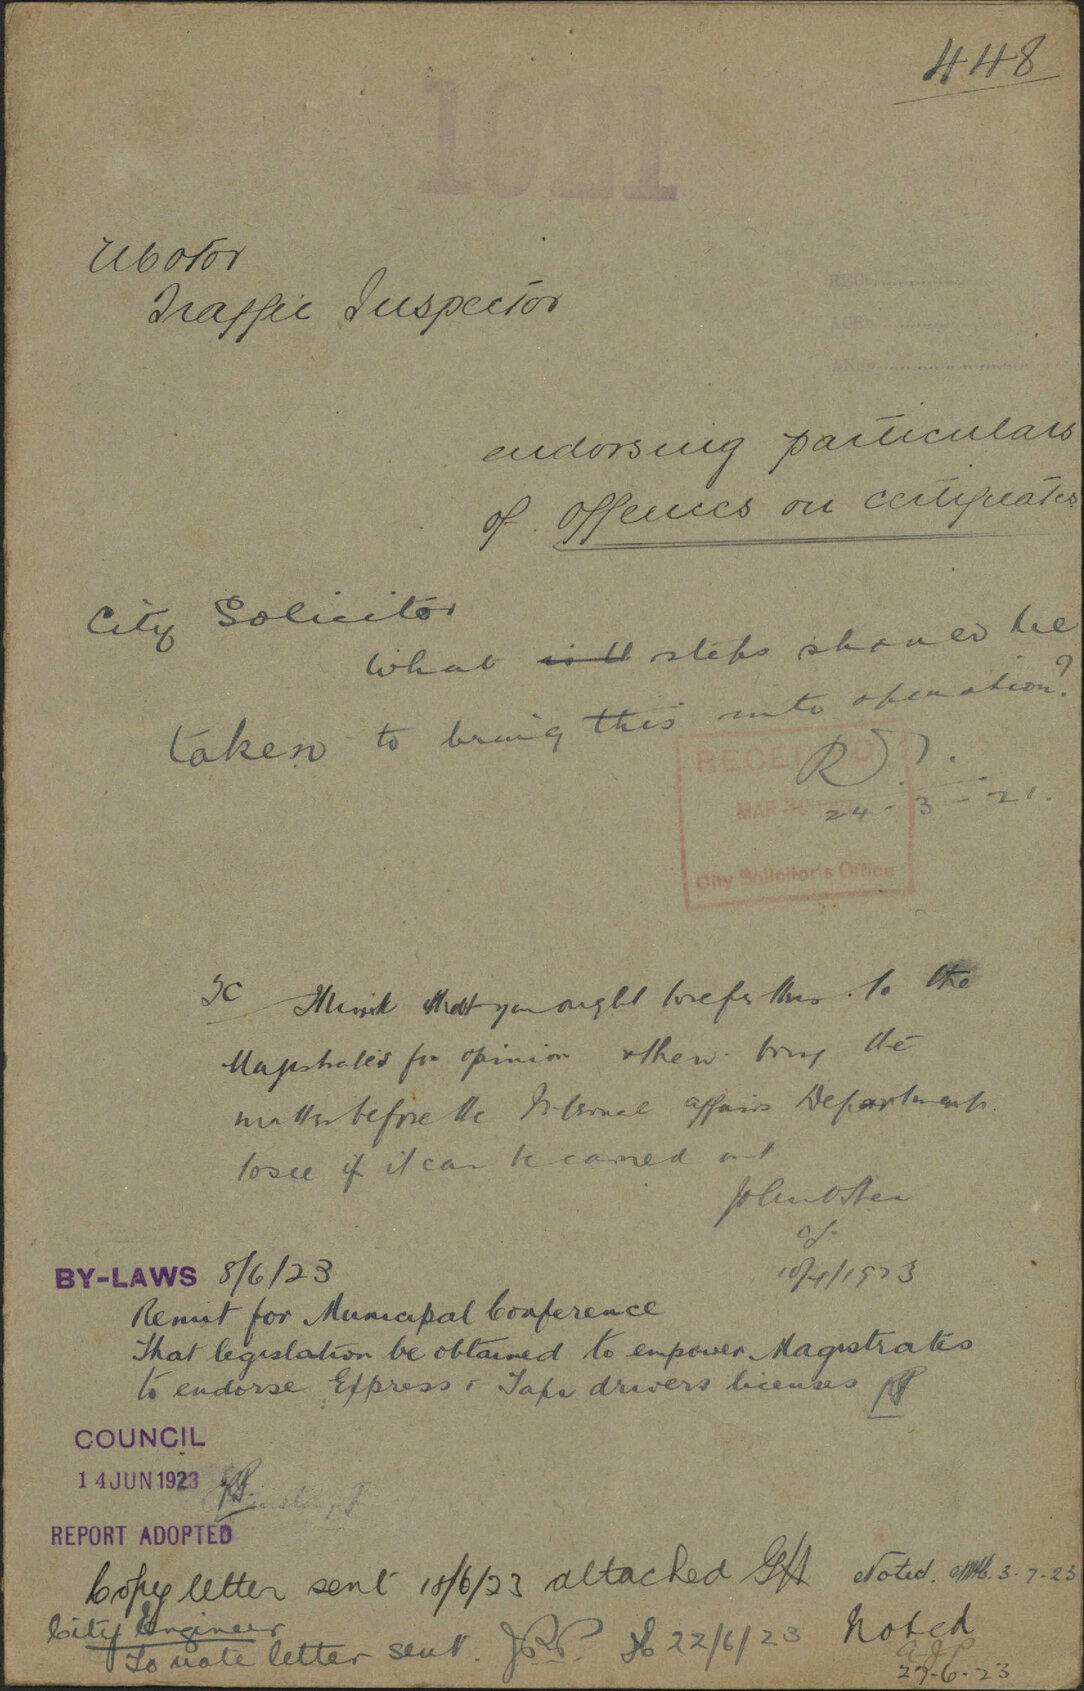 448
1921
Motor
Traffic Inspector
endorsing particulars
of offences on certificates
City Solicitor
What steps should be
taken to bring this into operation?
RECEIVED
MAR
24-3-21.
City Solicitor's Office
TC I think that you ought to refer this to the
Magistrates for opinion & then bring the
matter before the Internal affairs Department
to see if it can be carried out
John O'Shea
10/4/1923
BY-LAWS 8/6/23
Remit for Municipal Conference
That legislation be obtained to empower Magistrates
to endorse Express & Taxi drivers licenses
COUNCIL
14 JUN 1923
REPORT ADOPTED
Copy letter sent 18/6/23 attached Noted. 3-7-23
City Engineer
To note letter sent. 22/6/23 Noted
27-6-23